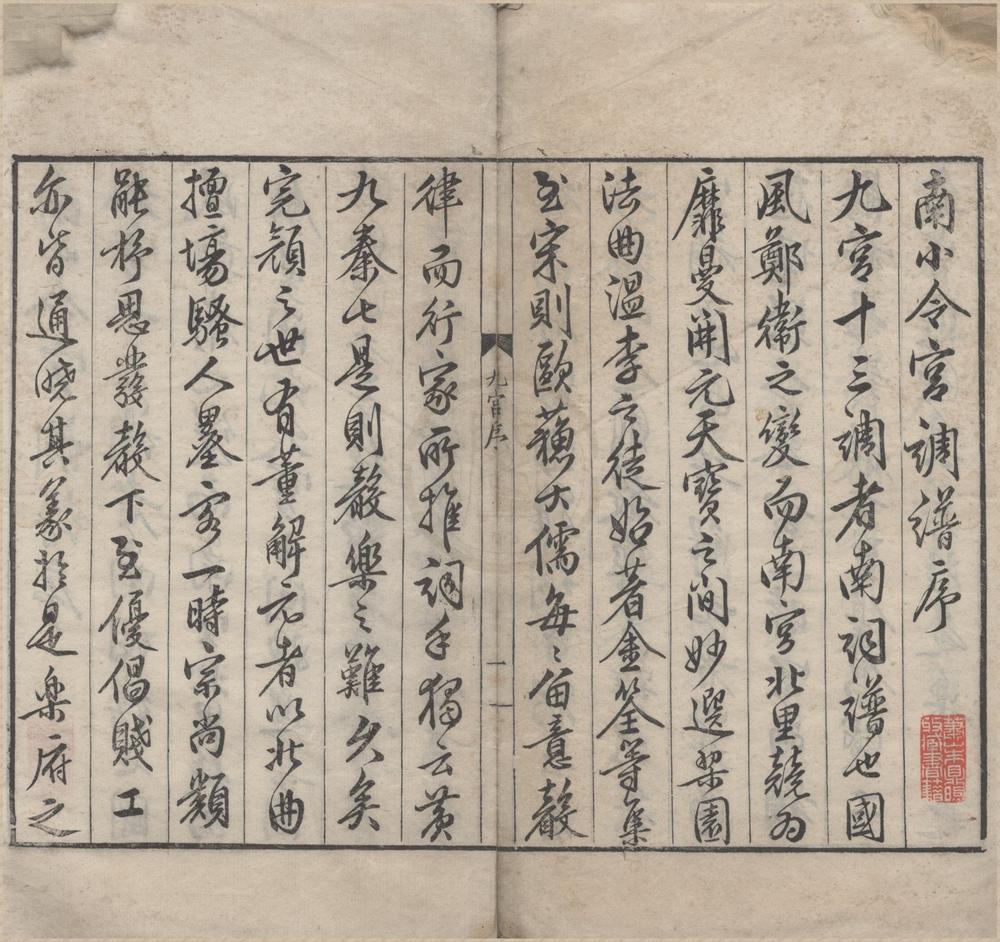 南小令宮調譜序
九宮十三調者南詞譜也國
風鄭衞之變而南宮北里競为
靡曼開元天寶之间妙選梨園
法曲温李之徒始著金筌等集
至宋則歐蘓大儒每〻留意聲
律而行家所推詞手獨云黄
九秦七是則聲樂之難久矣
完顔之世有董解元者以北曲
擅塲騷人墨客一時宗尚類
能抒思發聲下至優倡賤工
亦皆通曉其義於是楽府之
九宫序
一
蕭山朱鼎煦收藏書籍